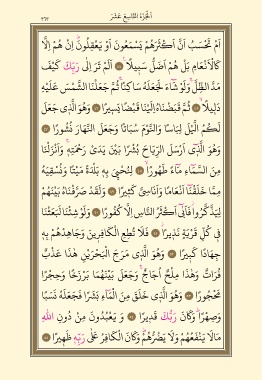 الجزء التاسع عشر
٣٦٣
اَمْ تَحْسَبُ اَنَّ اَكْثَرَهُمْ يَسْمَعُونَ اَوْ يَعْقِلُونَ اِنْ هُمْ اِلَّا
كَالْاَنْعَامِ بَلْ هُمْ اَضَلُّ سَبِيلًا ۞ اَلَمْ تَرَ اِلٰى رَبِّكَ كَيْفَ
مَدَّ الظِّلَّ وَلَوْ شَاءَ لَجَعَلَهُ سَاكِنًا ثُمَّ جَعَلْنَا الشَّمْسَ عَلَيْهِ
دَلِيلًا ۞ ثُمَّ قَبَضْنَاهُ اِلَيْنَا قَبْضًا يَسِيرًا ۞ وَهُوَ الَّذِى جَعَلَ
لَكُمُ الَّيْلَ لِبَاسًا وَالنَّوْمَ سُبَاتًا وَجَعَلَ النَّهَارَ نُشُورًا ۞
وَهُوَ الَّذِى اَرْسَلَ الرِّيَاحَ بُشْرًا بَيْنَ يَدَىْ رَحْمَتِهِ وَاَنْزَلْنَا
مِنَ السَّمَاءِ مَاءً طَهُورًا ۞ لِنُحْيِىَ بِهِ بَلْدَةً مَيْتًا وَنُسْقِيَهُ
مِمَّا خَلَقْنَا اَنْعَامًا وَاَنَاسِىَّ كَثِيرًا ۞ وَلَقَدْ صَرَّفْنَاهُ بَيْنَهُمْ
لِيَذَّكَّرُوا فَاَبٰى اَكْثَرُ النَّاسِ اِلَّا كُفُورًا ۞ وَلَوْ شِئْنَا لَبَعَثْنَا
فِى كُلِّ قَرْيَةٍ نَذِيرًا ۞ فَلَا تُطِعِ الْكَافِرِينَ وَجَاهِدْهُمْ بِهِ
جِهَادًا كَبِيرًا ۞ وَهُوَ الَّذِى مَرَجَ الْبَحْرَيْنِ هٰذَا عَذْبٌ
فُرَاتٌ وَهٰذَا مِلْحٌ اُجَاجٌ وَجَعَلَ بَيْنَهُمَا بَرْزَخًا وَحِجْرًا
مَحْجُورًا ۞ وَهُوَ الَّذِى خَلَقَ مِنَ الْمَاءِ بَشَرًا فَجَعَلَهُ نَسَبًا
وَصِهْرًا وَكَانَ رَبُّكَ قَدِيرًا ۞ وَيَعْبُدُونَ مِنْ دُونِ اللّٰهِ
مَالَا يَنْفَعُهُمْ وَلَا يَضُرُّهُمْ وَكَانَ الْكَافِرُ عَلٰى رَبِّهِ ظَهِيرًا ۞